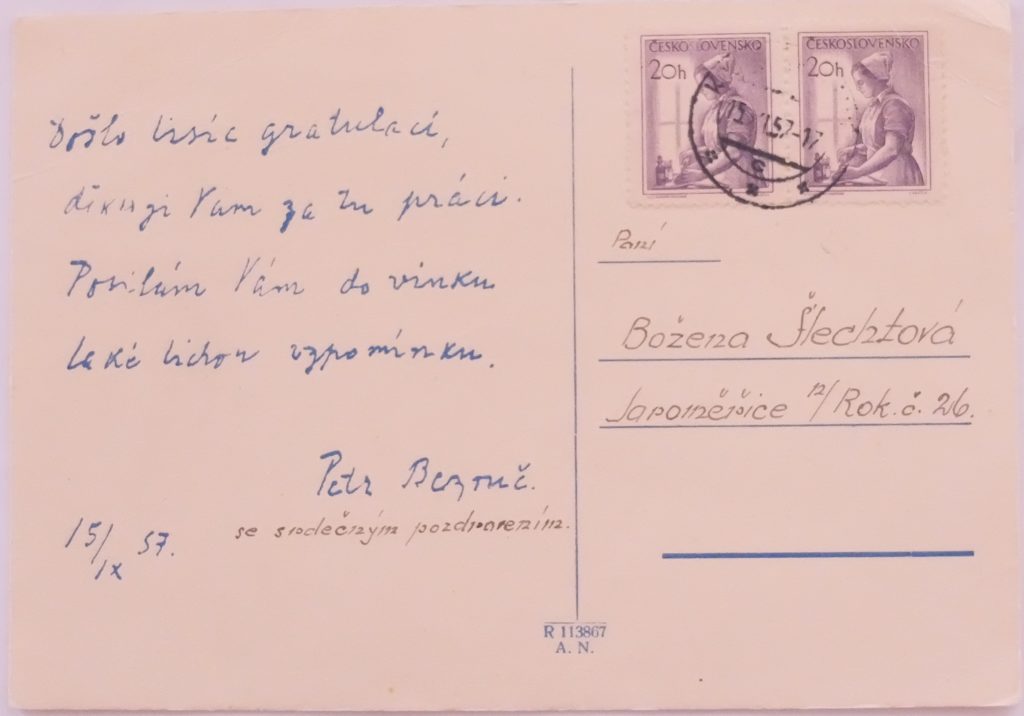 Došlo tisíc gratulací,
děkuji Vam za tu práci.
Posílám Vám do vínku
také tichou vzpomínku.
Petr Bezruč.
se srdečným pozdravením.
15/IX 57.
ČESKOSLOVENSKO
20h
ČESKOSLOVENSKO
20h
15. 57-17
Paní
Božena Šlechtová
Jaroměřice n/Rok. č. 26.
R 113867
A. N.